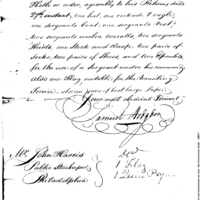 Cloth or order, agreeably to his Returns dated
27th instant, one hat, one cockade & eagle,
one sergeants coat, one sergeants vest,
two sergeants woolen overalls, two sergeants
Shirts, one Stock and clasp, two pairs of
Socks, two pairs of Shoes, and two
for the use of a Sergeant under his command
also one flag suitable for the recruiting
Service, also one of best large Paper.
Your most obedient Servant,
Samuel
Mr. John Harris
Public Storekeeper
Philadelphia
1 Flag
1 Quire Pap.